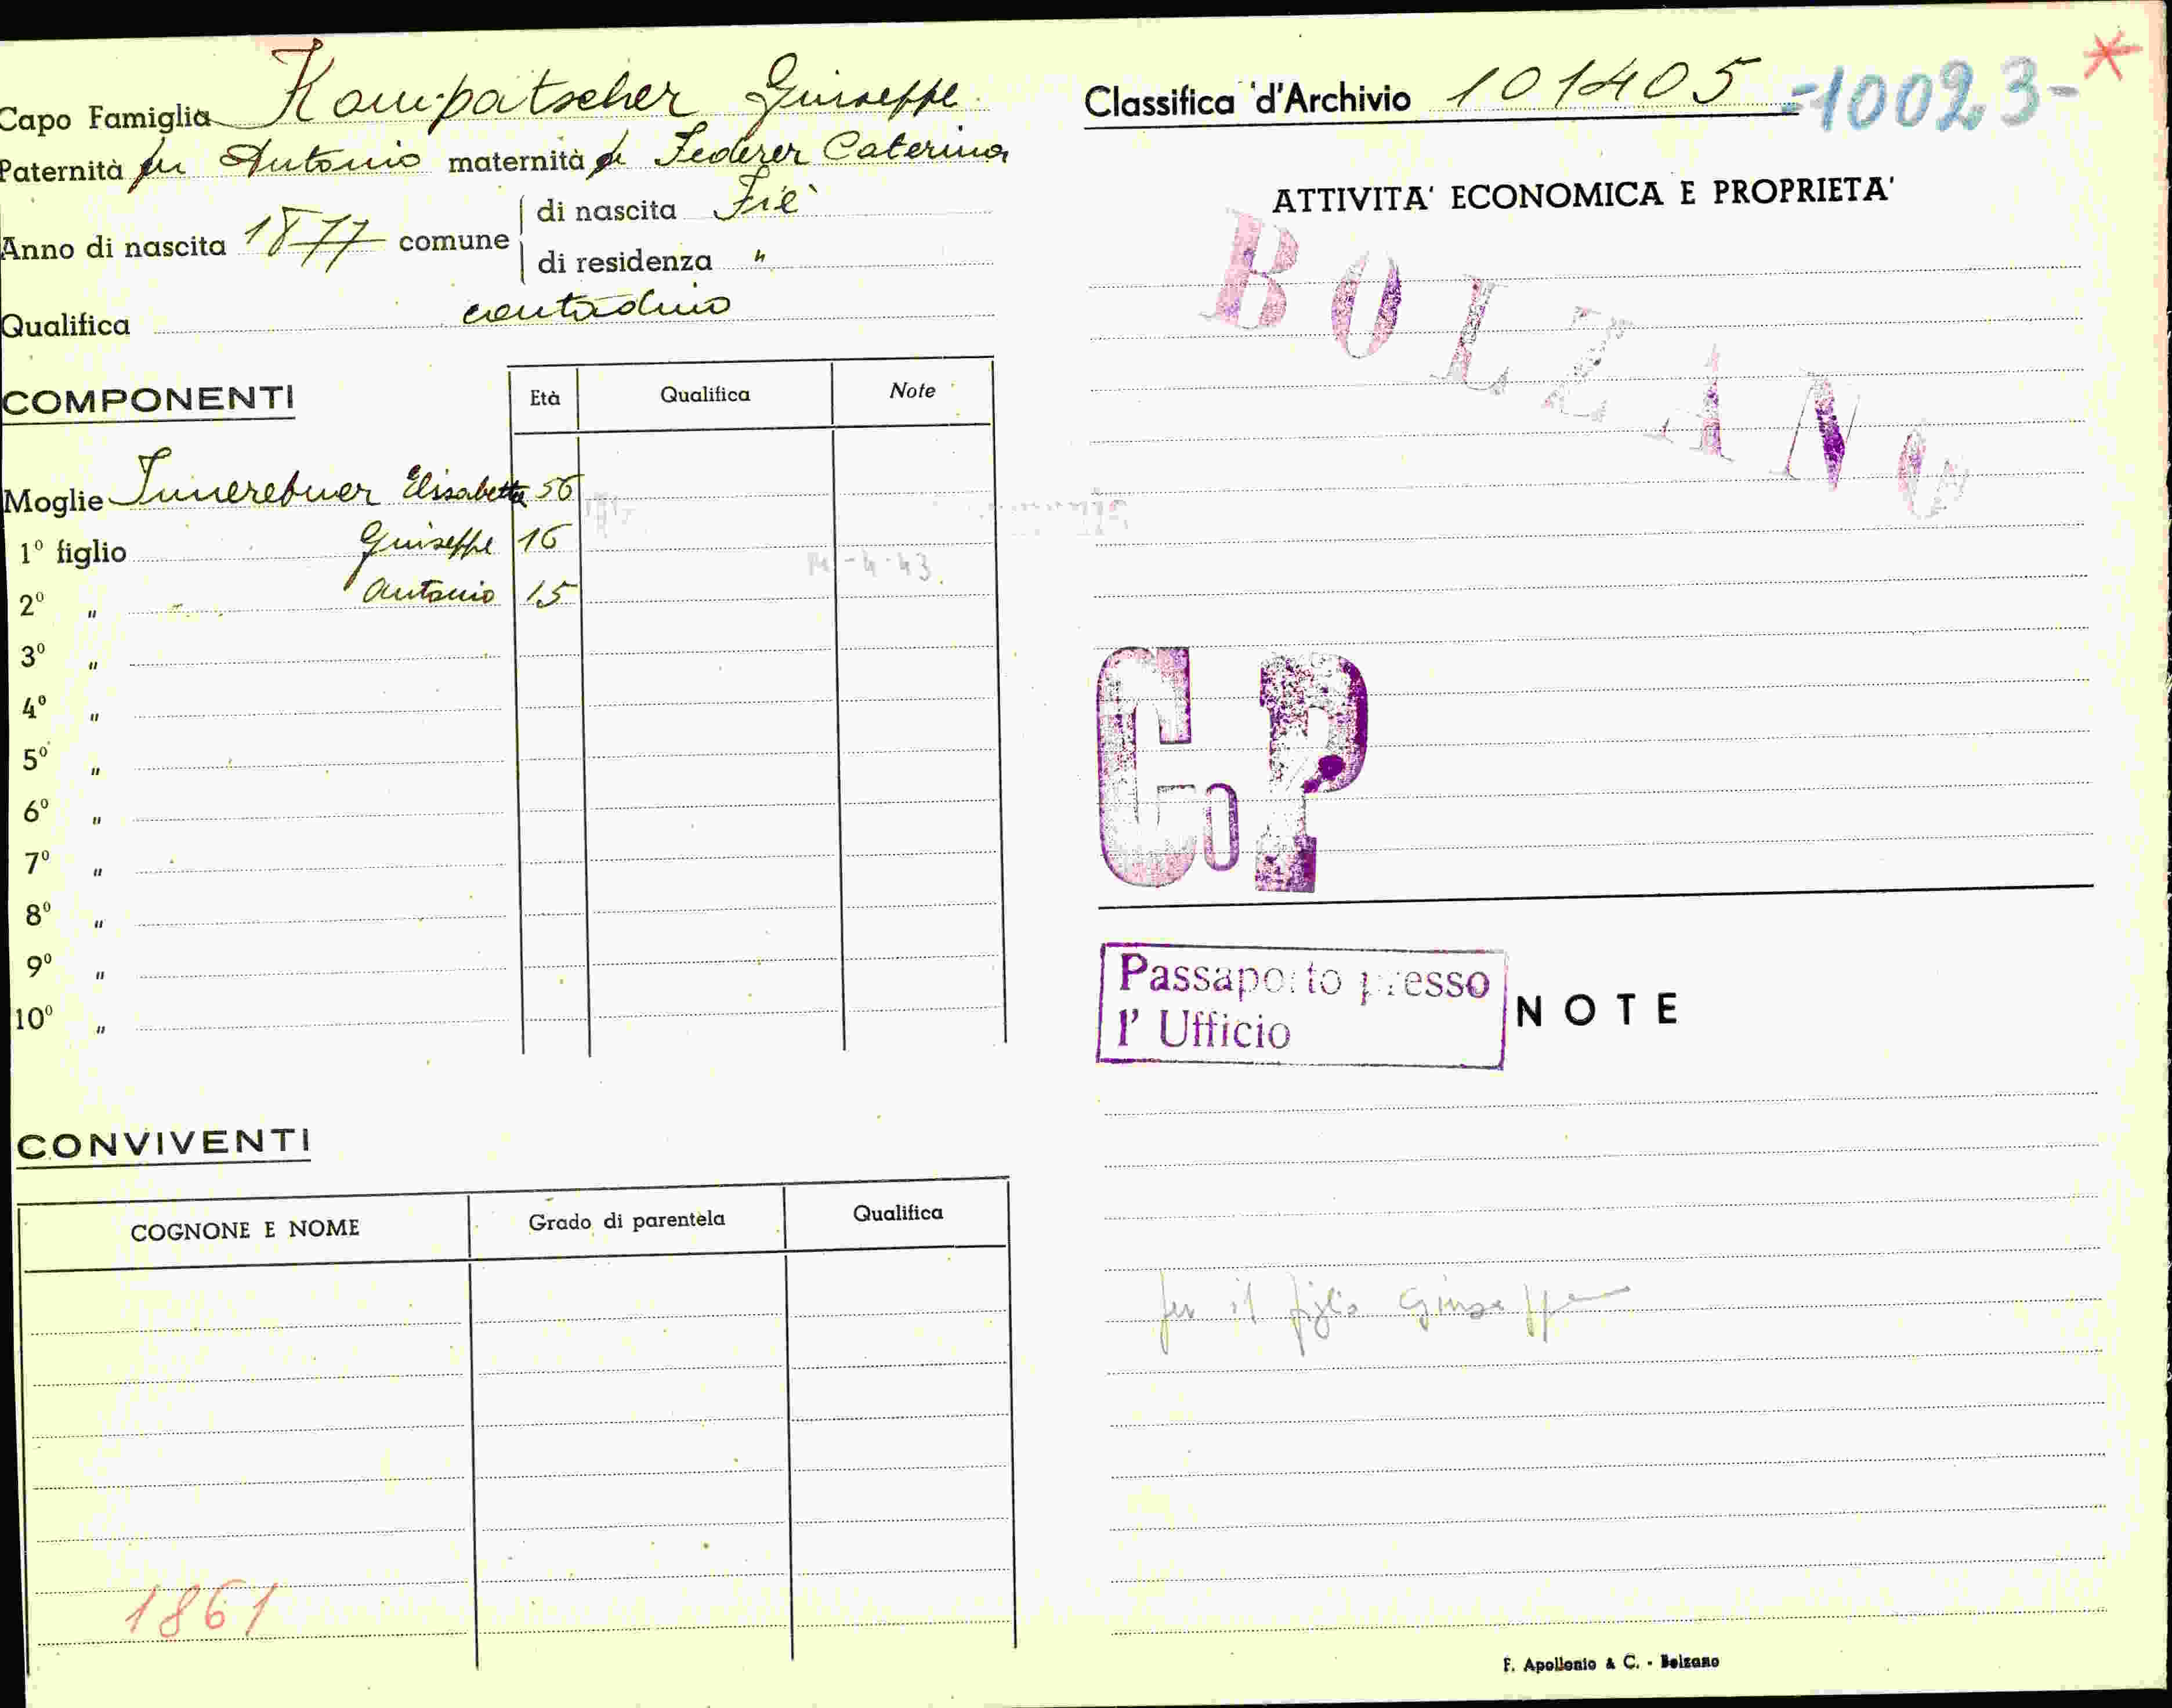 Capo Famiglia Kompatscher Giuseppe
Paternità fu Antonio maternità di Federer Caterina
Anno di nascita 1877 comune di nascita Fiè
di residenza "
Qualifica contadino
COMPONENTI Età Qualifica Note
Moglie Innerebner Elisabetta 56
1º figlio Giuseppe 16
-4-43
2º " Antonio 15
3º "
4º "
5º "
6º "
7º "
8º "
9º "
10º "
CONVIVENTI
COGNONE E NOME Grado di parentela Qualifica
1861
Classifica d'Archivio 101405 -10023-*
ATTIVITA' ECONOMICA E PROPRIETA'
BOLZANO
Co P
Passaporto presso
l' Ufficio
NOTE
per il figlio Giuseppe
F. Apollonio & C. - Bolzano